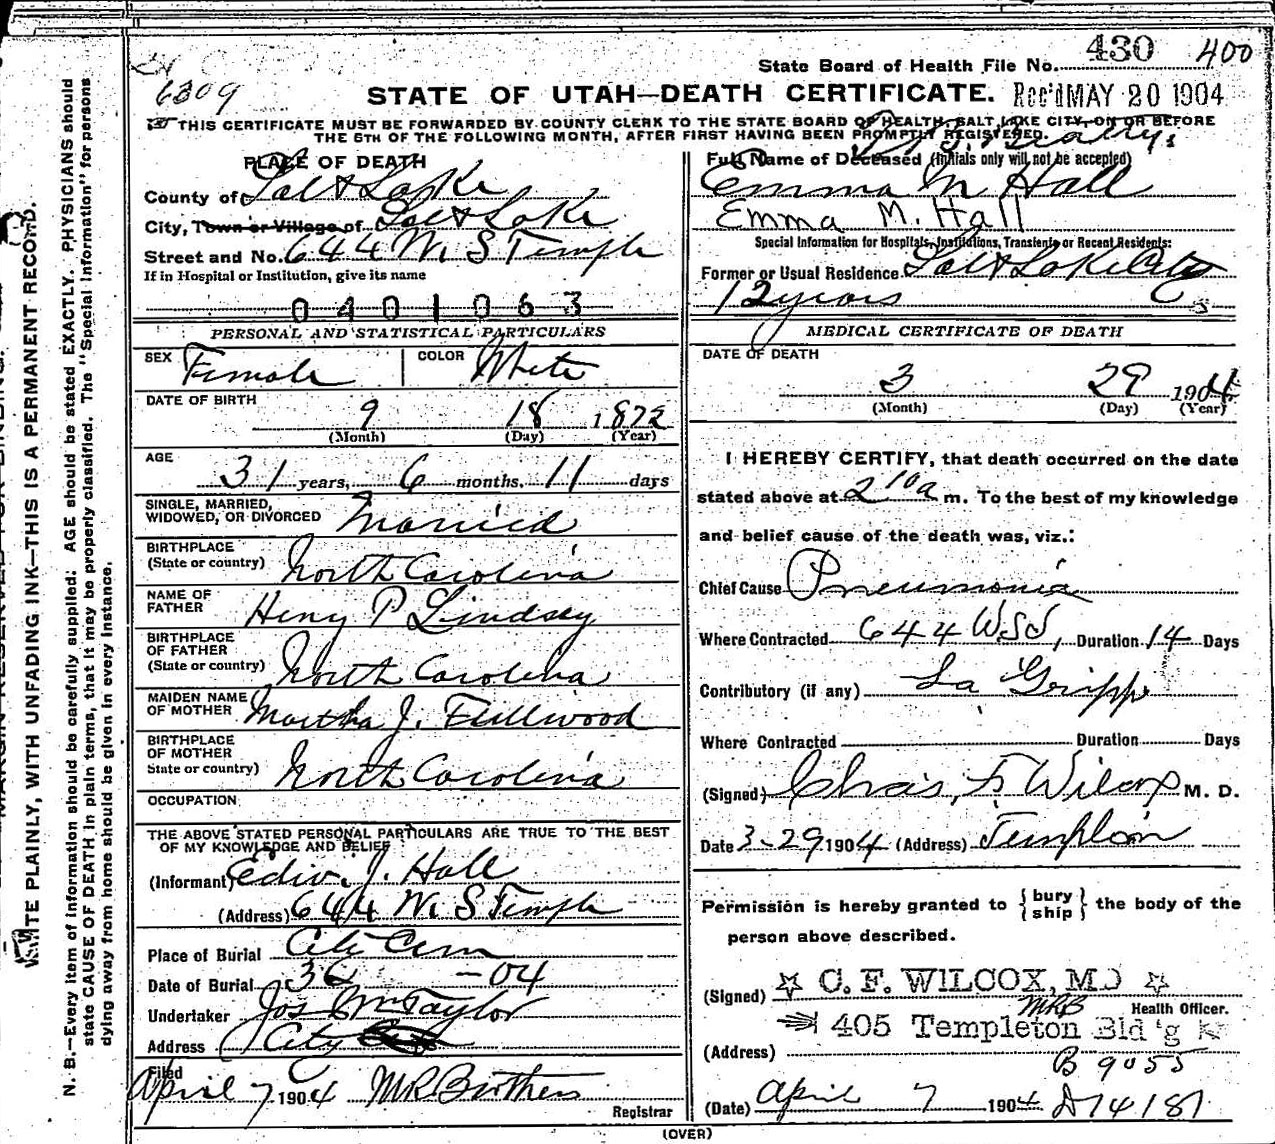 430 400
State Board of Health File No.
6309
STATE OF UTAH—DEATH CERTIFICATE. Rec'd MAY 20 1904
THIS CERTIFICATE MUST BE FORWARDED BY COUNTY CLERK TO THE STATE BOARD OF HEALTH, SALT LAKE CITY, ON OR BEFORE
THE 5TH OF THE FOLLOWING MONTH, AFTER FIRST HAVING BEEN PROMPTLY REGISTERED.
PLACE OF DEATH
County of Salt Lake
City, Town or Village of Salt Lake
Street and No. 644 W S Temple
If in Hospital or Institution, give its name
0401063
Full Name of Deceased (initials only will not be accepted)
Emma M Hall
Emma M. Hall
Special Information for Hospitals, Institutions, Transients or Recent Residents:
Former or Usual Residence Salt Lake City
12 years
PERSONAL AND STATISTICAL PARTICULARS
SEX Female COLOR White
DATE OF BIRTH
9 18 1872
(Month) (Day) (Year)
AGE
31 years, 6 months, 11 days
SINGLE, MARRIED,
WIDOWED, OR DIVORCED Married
BIRTHPLACE
(State or country) North Carolina
NAME OF
FATHER Henry P Lindsey
BIRTHPLACE
OF FATHER
(State or country) North Carolina
MAIDEN NAME
OF MOTHER Martha J. Fullwood
BIRTHPLACE
OF MOTHER
State or country) North Carolina
OCCUPATION
THE ABOVE STATED PERSONAL PARTICULARS ARE TRUE TO THE BEST
OF MY KNOWLEDGE AND BELIEF
(Informant) Edw. J. Hall
(Address) 644 W. S Temple
Place of Burial City Cem
Date of Burial 3 -04
Undertaker Jos Wm Taylor
Address City
Filed
April 7 1904 Registrar
MEDICAL CERTIFICATE OF DEATH
DATE OF DEATH
3 29 1904
(Month) (Day) (Year)
I HEREBY CERTIFY, that death occurred on the date
stated above at 2 10 a m. To the best of my knowledge
and belief cause of the death was, viz.:
Chief Cause Pneumonia
Where Contracted 644 WST, Duration 14 Days
Contributory (if any) La Grippe
Where Contracted Duration Days
(Signed) Chas. F. Wilcox M. D.
Date 3-29 1904 (Address) Templeton
Permission is hereby granted to { bury
ship } the body of the
person above described.
(Signed) C. F. WILCOX, M.D
Health Officer.
405 Templeton Bld'g
(Address)
B 9055
(Date) April 7 1904 D 14187
(OVER)
WRITE PLAINLY, WITH UNFADING INK—THIS IS A PERMANENT RECORD.
N. B.—Every item of information should be carefully supplied. AGE should be stated EXACTLY. PHYSICIANS should
state CAUSE OF DEATH in plain terms, that it may be properly classified. The "Special Information" for persons
dying away from home should be given in every instance.